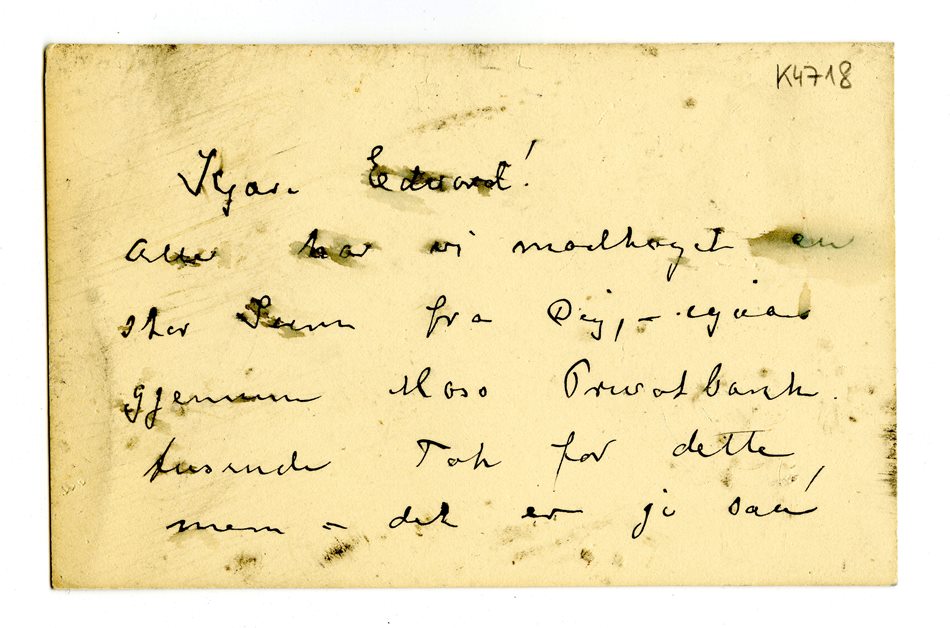 K4718
Kjære Edvard!
Atter har vi modtaget en
stor Sum fra Dig, – igjen
gjennem Moss Privatbank.
tusende Tak for dette
men – det er jo saa